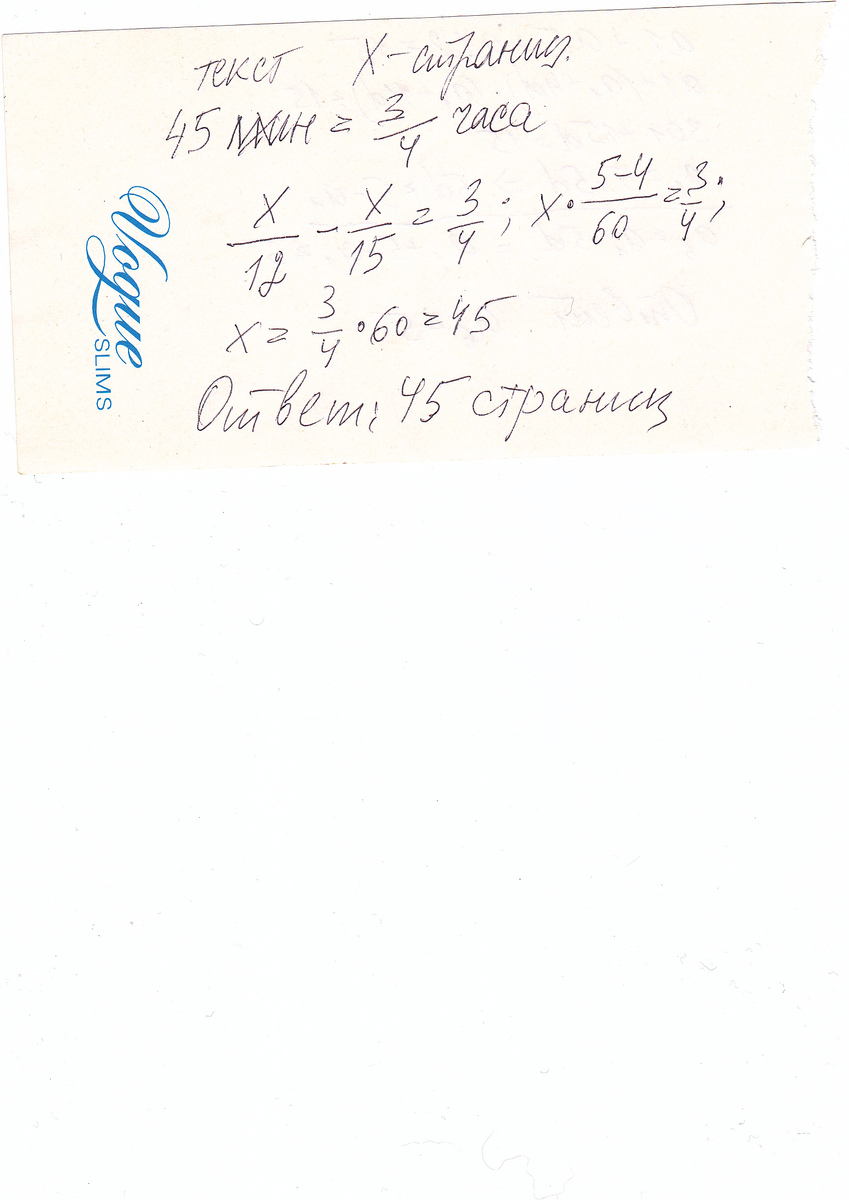 текст X - страниц.
45 мин = 3/4 часа
X/12 - X/15 = 3/4 ; X · 5-4/60 = 3/4 ;
X = 3/4 · 60 = 45
Ответ: 45 страниц
Vogue
SLIMS